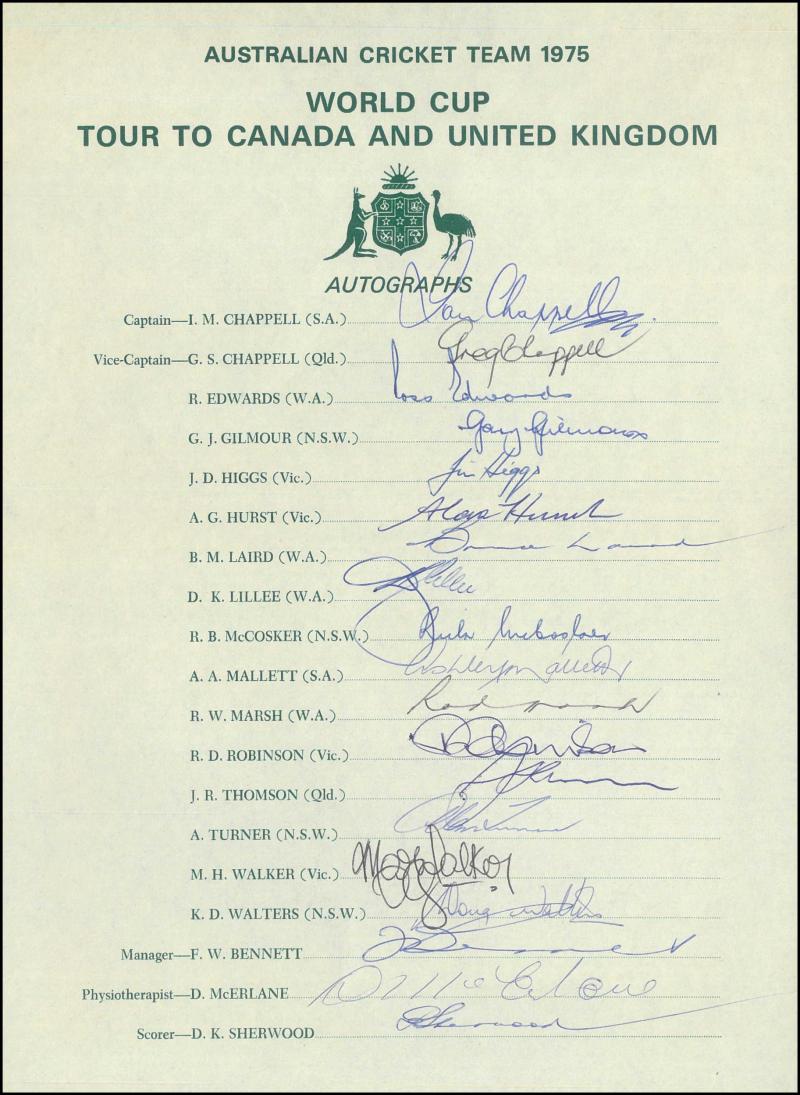 AUSTRALIAN CRICKET TEAM 1975
WORLD CUP
TOUR TO CANADA AND UNITED KINGDOM
AUTOGRAPHS
Captain—I. M. CHAPPELL (S.A.) Ian Chappell
Vice-Captain—G. S. CHAPPELL (Qld.) Greg Chappell
R. EDWARDS (W.A.) Ross Edwards
G. J. GILMOUR (N.S.W.) Gary Gilmour
J. D. HIGGS (Vic.) Jim Higgs
A. G. HURST (Vic.) Alan Hurst
B. M. LAIRD (W.A.) Bruce Laird
D. K. LILLEE (W.A.) DLillee
R. B. McCOSKER (N.S.W.) Rick McCosker
A. A. MALLETT (S.A.) Ashley Mallett
R. W. MARSH (W.A.) Rod Marsh
R. D. ROBINSON (Vic.)
J. R. THOMSON (Qld.)
A. TURNER (N.S.W.) Alan Turner
M. H. WALKER (Vic.) Max Walker
K. D. WALTERS (N.S.W.) Doug Walters
Manager—F. W. BENNETT
Physiotherapist—D. McERLANE D McErlane
Scorer—D. K. SHERWOOD DSherwood